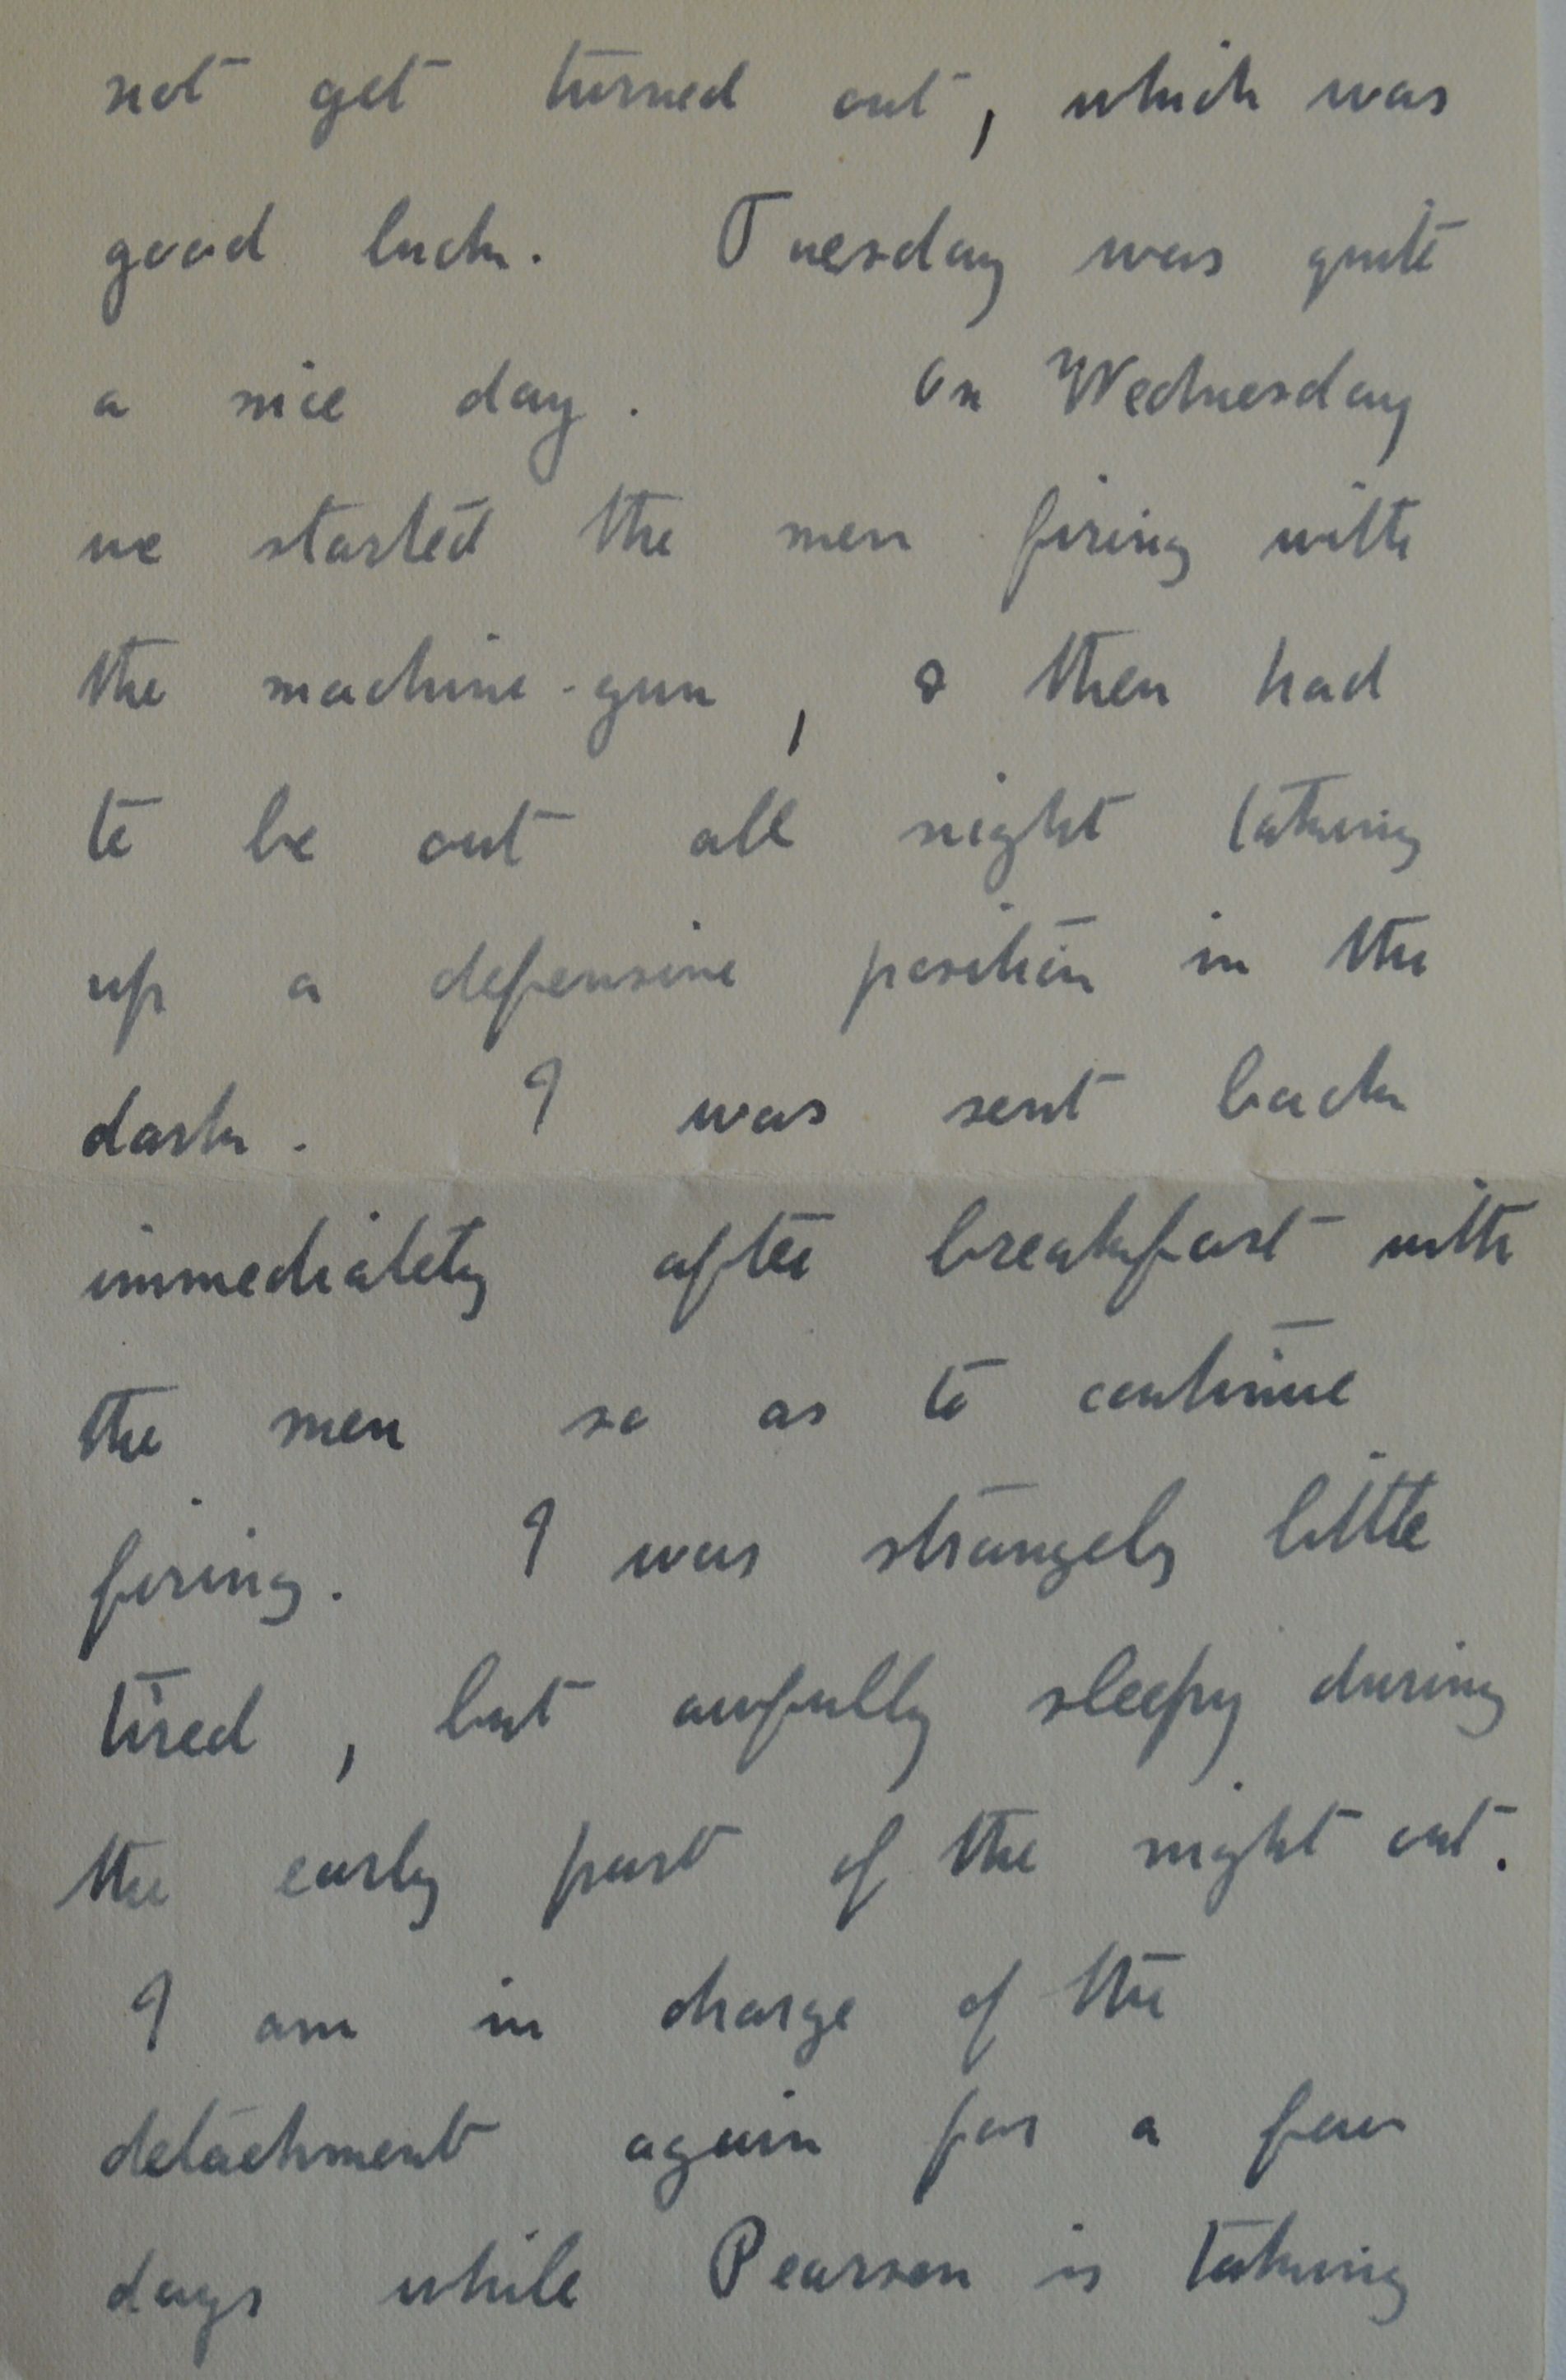 not get turned out, which was
good luck. Tuesday was quite
a nice day. On Wednesday
we started the men firing with
the machine-gun, & then had
to be out all night taking
up a defensive position in the
dark. I was sent back
immediately after breakfast with
the men so as to continue
firing. I was strangely little
tired, but awfully sleepy during
the early part of the night out.
I am in charge of the
detachment again for a few
days while Pearson is taking